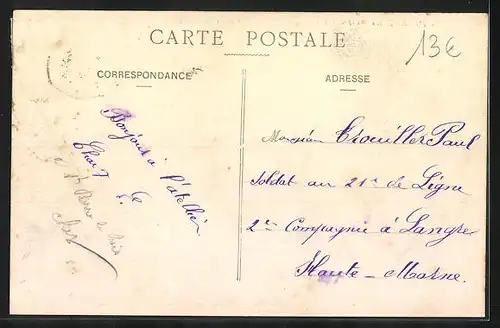 CARTE POSTALE
13€
CORRESPONDANCE
ADRESSE
Bonjour à l'atelier
Monsieur Trouiller Paul
Soldat au 21e de Ligne
2e Compagnie à Langres
Haute-Marne.